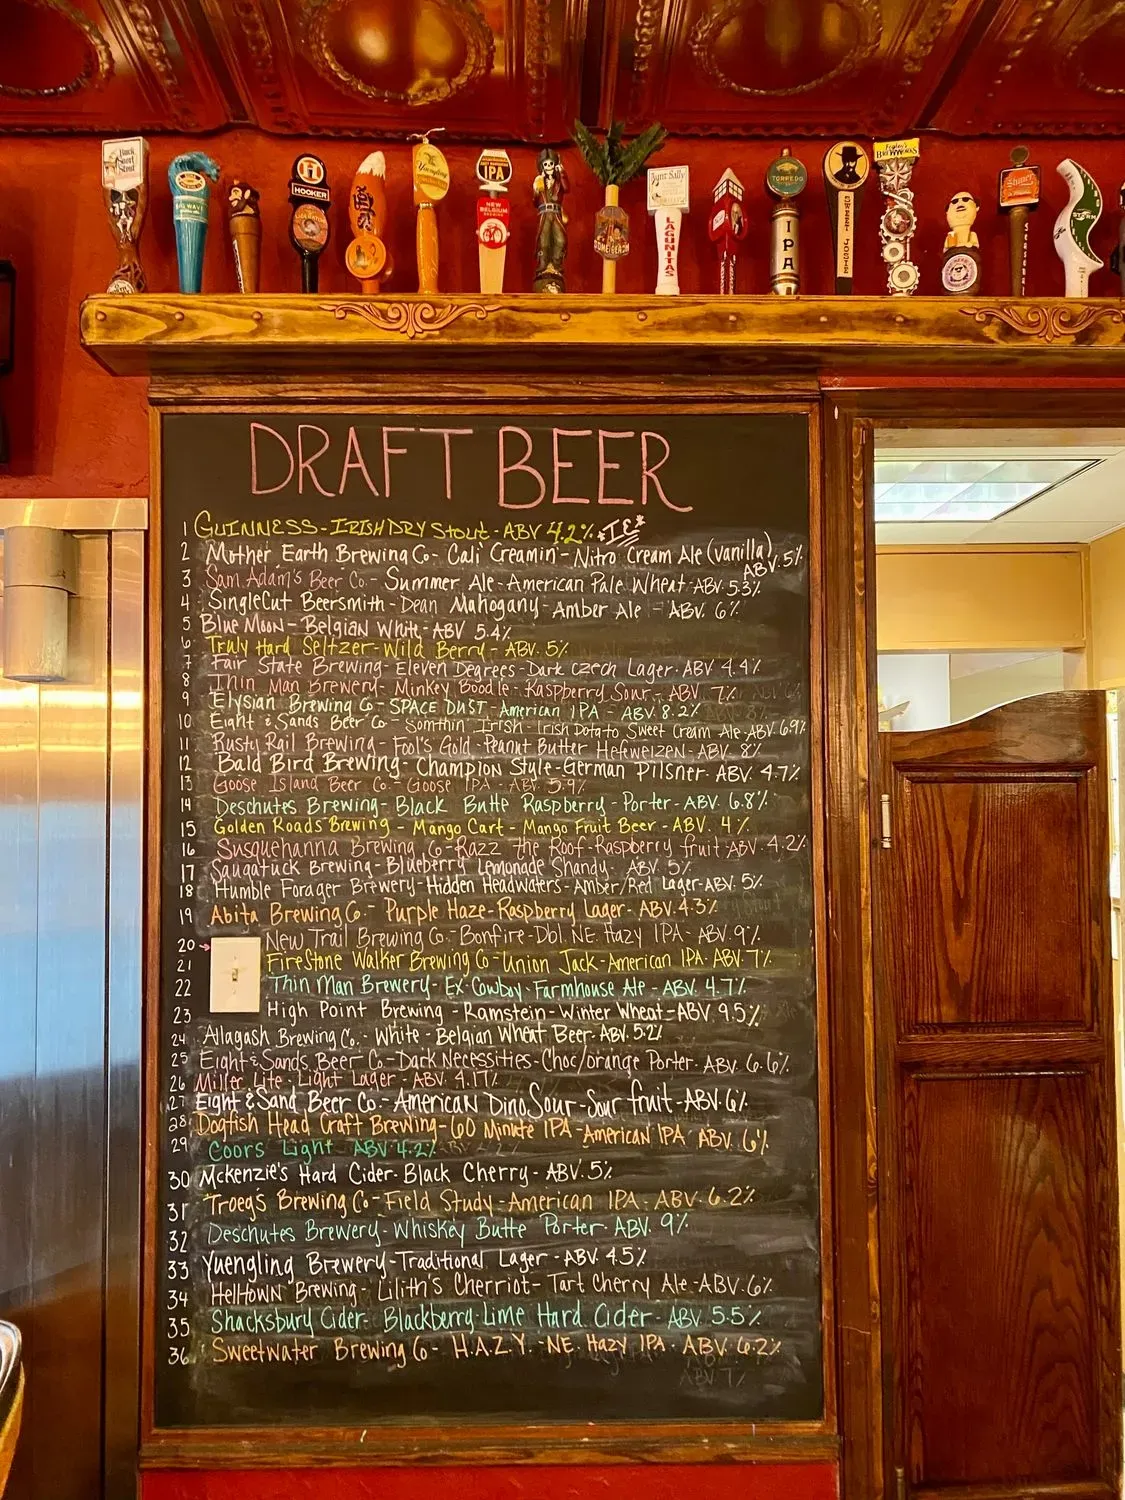 Buck Snort Stout
BIG WAVE
HOOKER
Yuengling
IPA
NEW BELGIUM
Aunt Sally
LAGUNITAS
TORPEDO
IPA
SWEET JOSIE
Fegley's BREWWORKS
Shiner
STORM
DRAFT BEER
1 GUINNESS - IRISH DRY Stout - ABV 4.2%
2 Mother Earth Brewing Co - Cali Creamin' - Nitro Cream Ale (vanilla) ABV. 5%
3 Sam Adam's Beer Co. - Summer Ale - American Pale Wheat - ABV 5.3%
4 SingleCut Beersmith - Dean Mahogany - Amber Ale - ABV. 6%
5 Blue Moon - Belgian White - ABV 5.4%
6 Truly Hard Seltzer - Wild Berry - ABV. 5%
7 Fair State Brewing - Eleven Degrees - Dark Czech Lager - ABV 4.4%
8 Thin Man Brewery - Minkey Boodle - Raspberry Sour - ABV. 7%
9 Elysian Brewing Co - SPACE DUST - American IPA - ABV 8.2%
10 Eight & Sands Beer Co - Somthin' Irish - Irish Potato Sweet Cream Ale - ABV 6.9%
11 Rusty Rail Brewing - Fool's Gold - Peanut Butter Hefweizen - ABV. 8%
12 Bald Bird Brewing - Champion Style - German Pilsner - ABV. 4.7%
13 Goose Island Beer Co. - Goose IPA - ABV. 5.9%
14 Deschutes Brewing - Black Butte Raspberry - Porter - ABV. 6.8%
15 Golden Roads Brewing - Mango Cart - Mango Fruit Beer - ABV. 4%
16 Susquehanna Brewing Co - Razz the Roof - Raspberry fruit ABV. 4.2%
17 Saugatuck Brewing - Blueberry Lemonade Shandy - ABV. 5%
18 Humble Forager Brewery - Hidden Headwaters - Amber/Red Lager - ABV. 5%
19 Abita Brewing Co. - Purple Haze - Raspberry Lager - ABV. 4.3%
20 New Trail Brewing Co. - Bonfire - Dbl. NE. Hazy IPA - ABV. 9%
21 Firestone Walker Brewing Co - Union Jack - American IPA ABV. 7%
22 Thin Man Brewery - Ex Cowboy - Farmhouse Ale - ABV. 4.7%
23 High Point Brewing - Ramstein - Winter Wheat - ABV 9.5%
24 Allagash Brewing Co. - White - Belgian Wheat Beer - ABV. 5.2%
25 Eight & Sands Beer Co - Dark Necessities - Choc/orange Porter - ABV. 6.6%
26 Miller Lite - Light Lager - ABV. 4.17%
27 Eight & Sand Beer Co. - American DinoSour - Sour fruit - ABV. 6%
28 Dogfish Head Craft Brewing - 60 Minute IPA - American IPA - ABV. 6%
29 Coors Light ABV 4.2%
30 Mckenzie's Hard Cider - Black Cherry - ABV. 5%
31 Troegs Brewing Co - Field Study - American IPA - ABV. 6.2%
32 Deschutes Brewery - Whiskey Butte Porter - ABV. 9%
33 Yuengling Brewery - Traditional Lager - ABV. 4.5%
34 HellTOWN Brewing - Lilith's Cherriot - Tart Cherry Ale - ABV. 6%
35 Shacksbury Cider - Blackberry Lime Hard Cider - ABV 5.5%
36 Sweetwater Brewing Co - H.A.Z.Y. - NE. Hazy IPA - ABV. 6.2%
ABV 7%